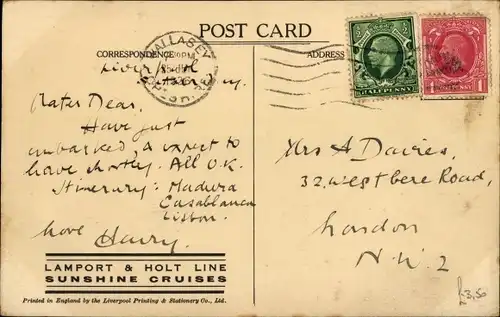 POST CARD
CORRESPONDENCE
ADDRESS
WALLASEY
HALFPENNY
1 1
Liverpool
Saturday
Mater Dear,
Have just
embarked, & expect to
leave shortly. All O.K.
Itinerary: Madeira
Casablanca
Lisbon.
Love Harry.
Mrs A Davies,
32, Westbere Road,
London
N.W. 2
LAMPORT & HOLT LINE
SUNSHINE CRUISES
Printed in England by the Liverpool Printing & Stationery Co., Ltd.
£3.50